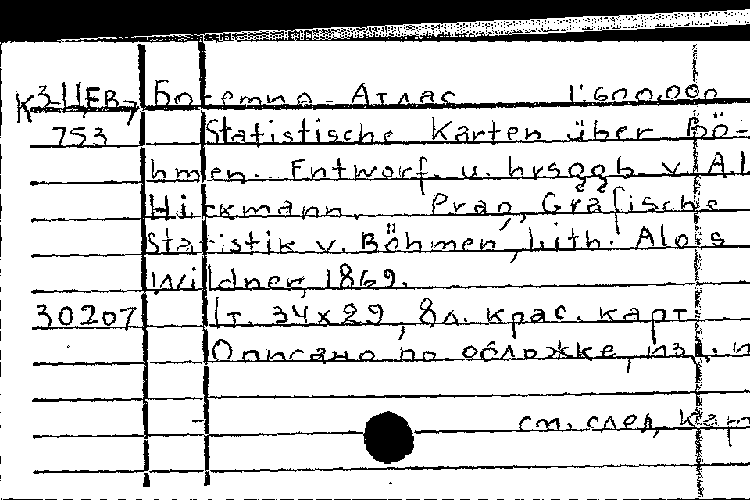 К3-ЦЕВ-7 Богемия - Атлас 1:600.000
753 Statistische Karten über Bö-
hmen. Entworf. u. hrsggb. v. A.L
Hickmann. Prag, Gräfische
Statistik v. Böhmen, Lith. Alois
Wildner, 1869.
30207 1т. 34x29, 8л. крас. карт
Описано по обложке,
см. след, кар